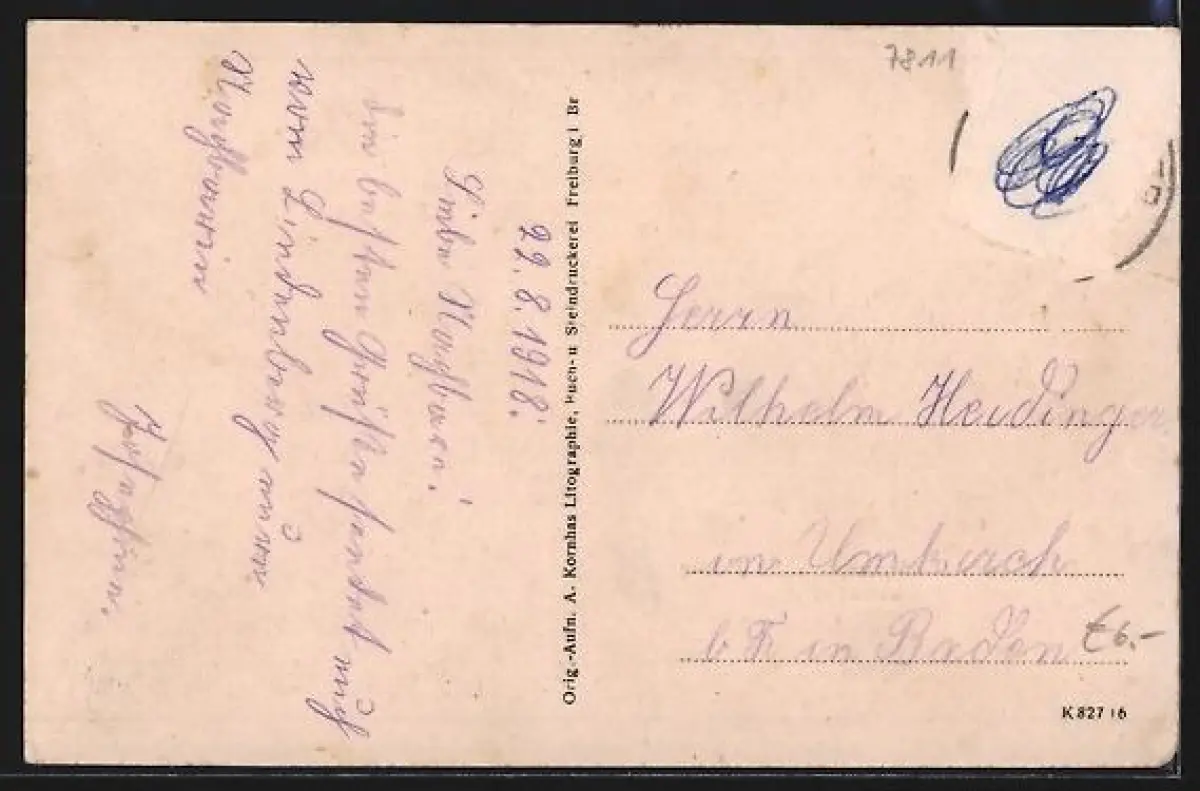 22.8.1918.
Liebe Nachbarn!
Die besten Grüße sendet euch
vom
Nachbarin
Josephine.
Orig.-Aufn. A. Kornhas Litographie, Buch- u Steindruckerei Freiburg i Br
7811
Herrn
Wilhelm Heidinger
in Umkirch
b F. in Baden
€6.-
K 827 16